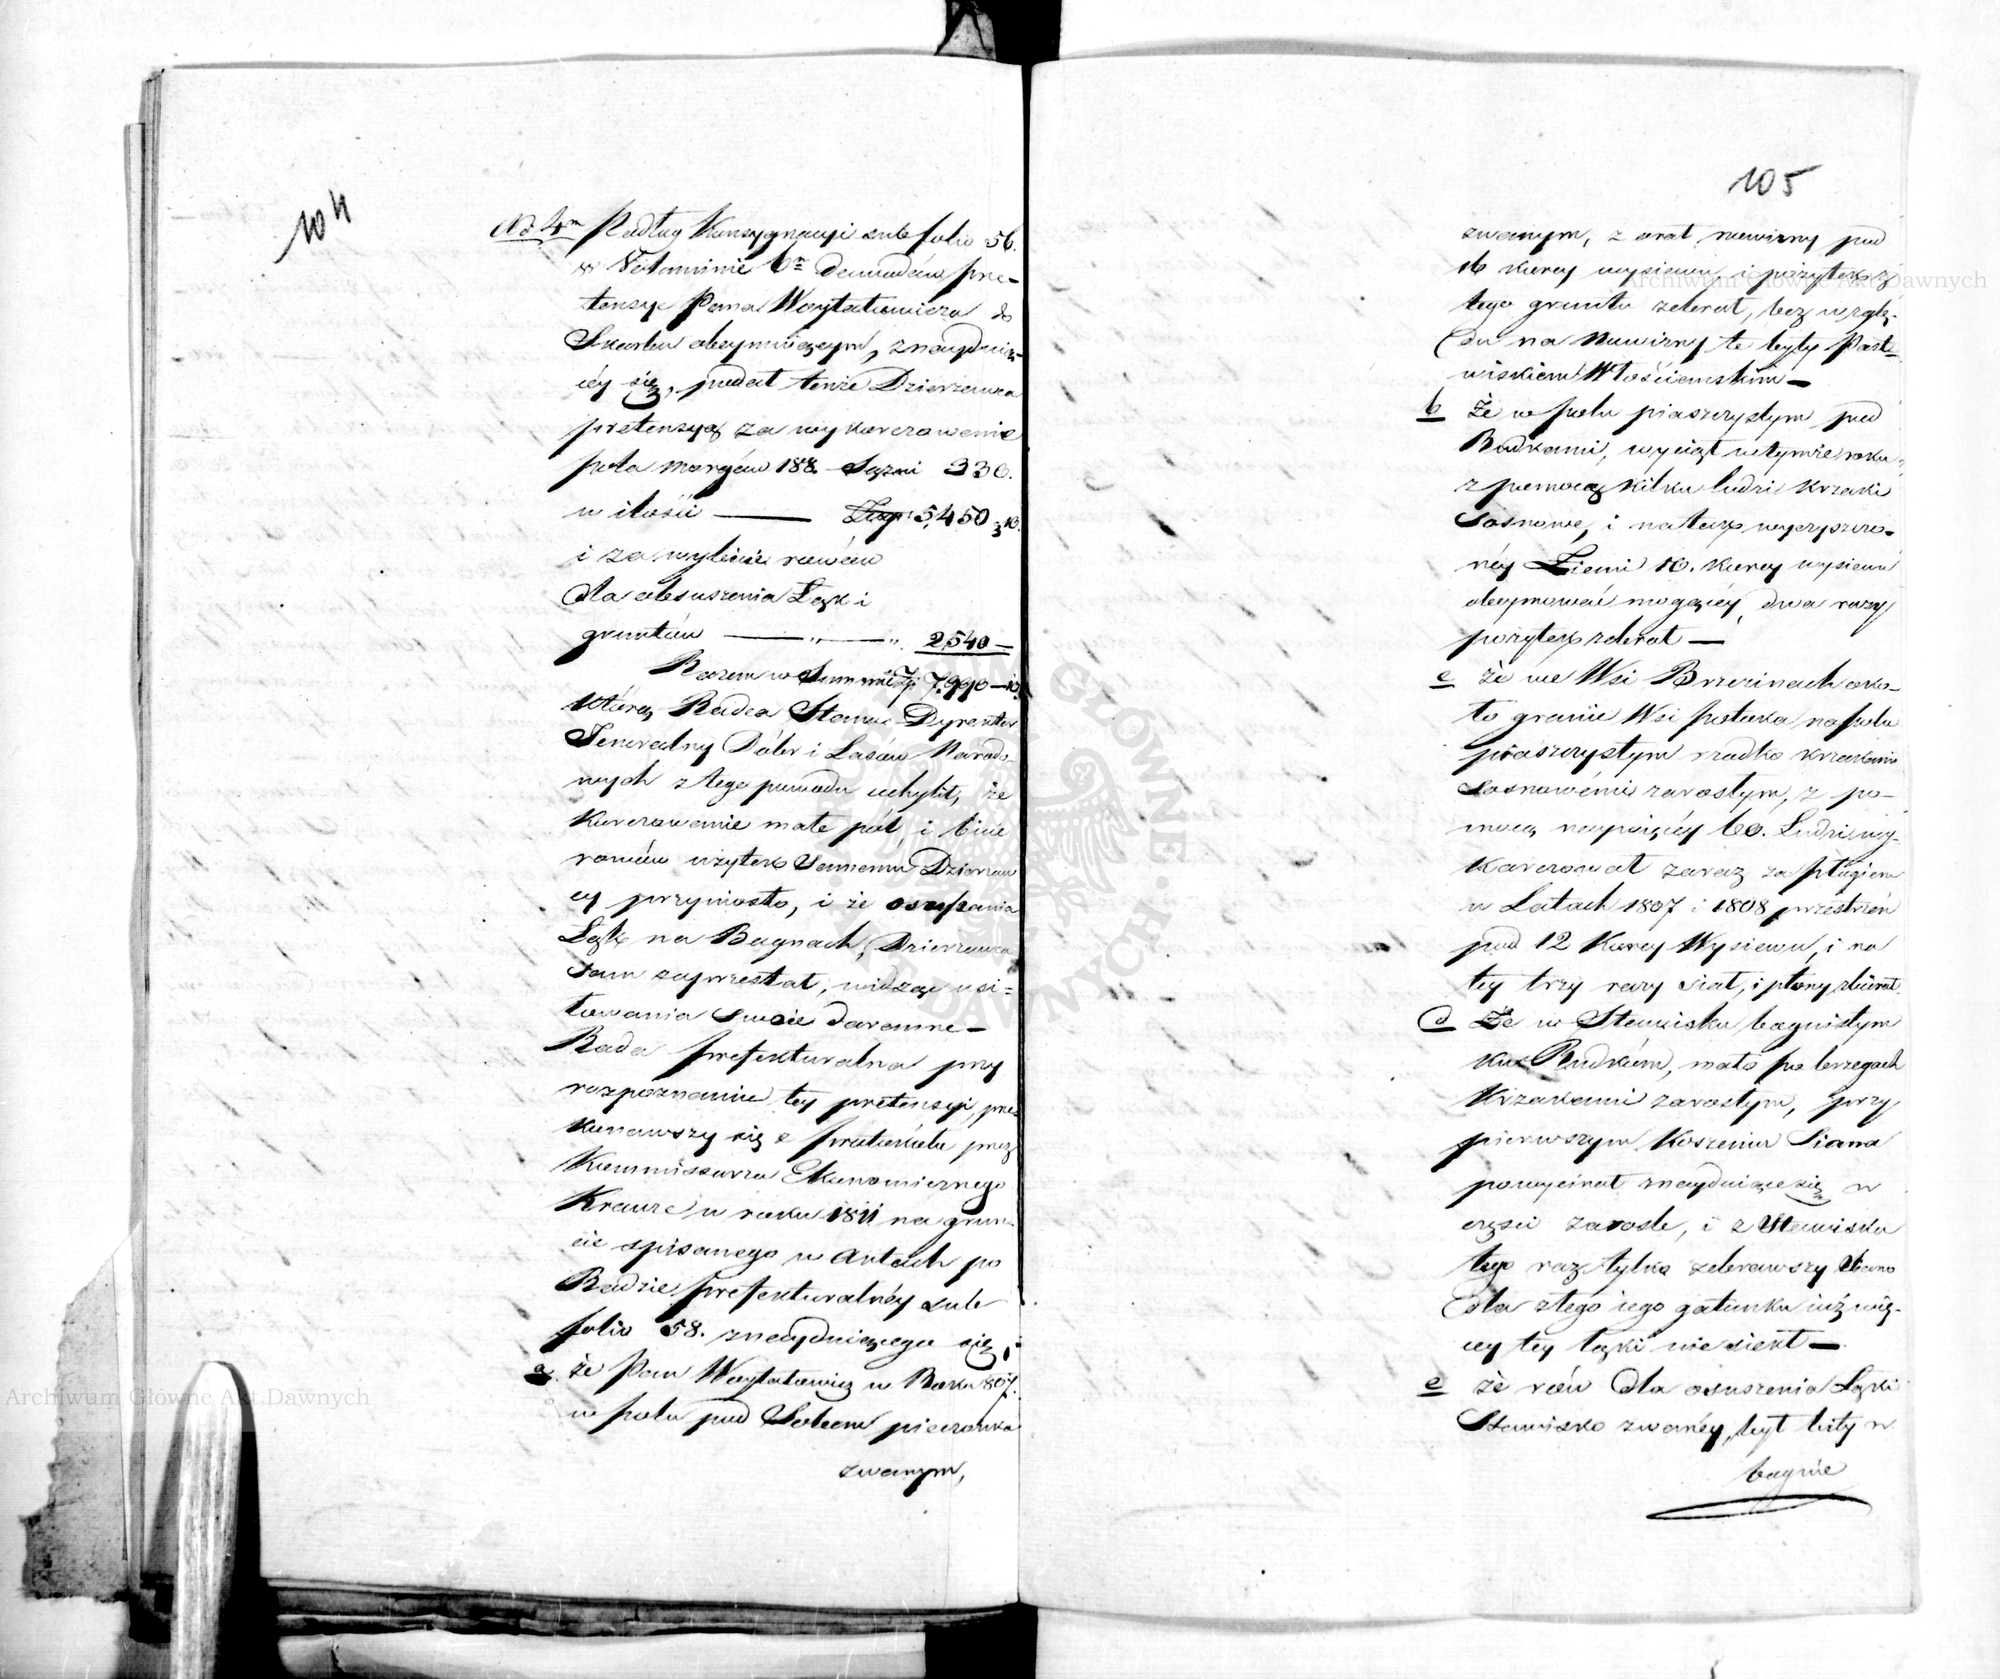 104
Ad 4m Podług Konsygnacyi sub folio 56.
w Voluminie 6m dowodów pre-
tensye Pana Woytatowicza do
Skarbu obeymuiącym, znayduią-
céy się, podał tenże Dzierżawca
pretensyą za wykarczowanie
pola morgów 188. Sążni 330.
w ilości — 5,450 10.
i za wybicie rowów
dla obsuszenia Łąk i
gruntów — „ — „ 2540 —
Razem w Summie Złp 7,990 — 10
którą Radca Stanu Dyrektor
Jeneralny Dóbr i Lasów Narodo-
wych z tego powodu uchylił, że
karczowanie małe pól, i bicie
rowów użytek samemu Dzierżaw
cy przyniosło, i że osuszania
Łąk na Bagnach, Dzierżawca
sam zaprzestał, widząc usi=
łowania swoie daremne —
Rada Prefekturalna przy
rozpoznaniu tey pretensyi, prze
konawszy się z Protokółu przez
Kommissarza Ekonomicznego
Krauze w roku 1811 na grun-
cie spisanego w Aktach po
Radzie Prefekturalnéy sub
folio 58. znayduiącego się,
a. że Pan Woytatowicz w Roku 807.
w polu pod Solcem pieczonka
zwanym,
105
zwanym, zorał nowizny pod
16 korcy wysiewu, i pożytek z
tego gruntu zebrał, bez wzglę-
du na nowizny te były Past=
wiskiem Włościańskim —
b że w polu piaszczystym pod
Rudkami, wyciął w tymże roku,
z pomocą kilku ludzi krzaki
sosnowe, i na tako wyczyszczo-
néy Ziemi 10. korcy wysiewu
obeymować mogącéy, dwa razy
pożytek zebrał —
c że we Wsi Brzezinach oko-
ło granic Wsi Potoka, na polu
piaszczystym rzadko krzakami
sosnowémi zarosłym, z po-
mocą naywięcéy 60. Ludzi wy-
karczował zaraz za pługiem
w Latach 1807 i 1808 przestrzeń
pod 12 Korcy Wysiewu, i na
tey trzy razy siał, i plony zbierał.
d Że w Stawisku bagnistym
ku Rudkom, mało po brzegach
krzakami zarosłym, przy
pierwszym koszeniu Siana
powycinał znayduiące się w
części zarosle, i z Stawiska
tego raz tylko zebrawszy Siano
dla złego iego gatunku iuż wię-
cey tey łąki nie siekł —
e że rów dla osuszenia Łąki
Stawisko zwanéy, był bity w
bagnie